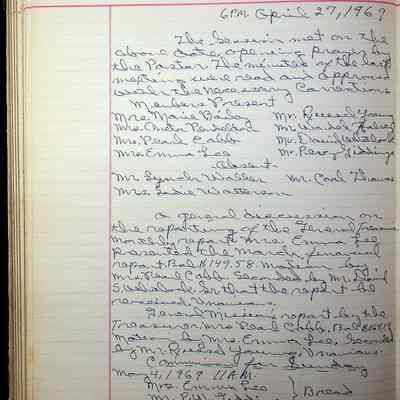 6 P.M. April 27, 1969
The Session met on the
above date, opening prayer by
the Pastor. The minutes of the last
meeting were read and approved
with the necessary corrections
Members Present
Mrs. Marie Bailey Mr. Russell Young
Mrs. Pendelton Mr. Wade
Mrs. Pearl Cobb Mr. David
Mrs. Emma Lee Mr. Percy Giddings
Absent
Mr. Lynch Walker Mr. Carl Thomas
Mrs. Sadie Watterson
A general discussion on
the reporting of the General Treasurer
monthly report. Mrs. Emma Lee
presented the March financial
report Bal. $1149.58. Motion by
Mrs. Pearl Cobb. Seconded by Mr. David
S. that the report be
received Unanious.
General Mission's report by the
Treasurer Mrs. Pearl Cobb. Bal.
Motion by Mrs. Emma Lee, Seconded
by Mr. Russell Young, Unanious.
Communion for Sunday
May 4, 1969 11 A.M.
Mrs. Emma Lee
Mr. } Bread